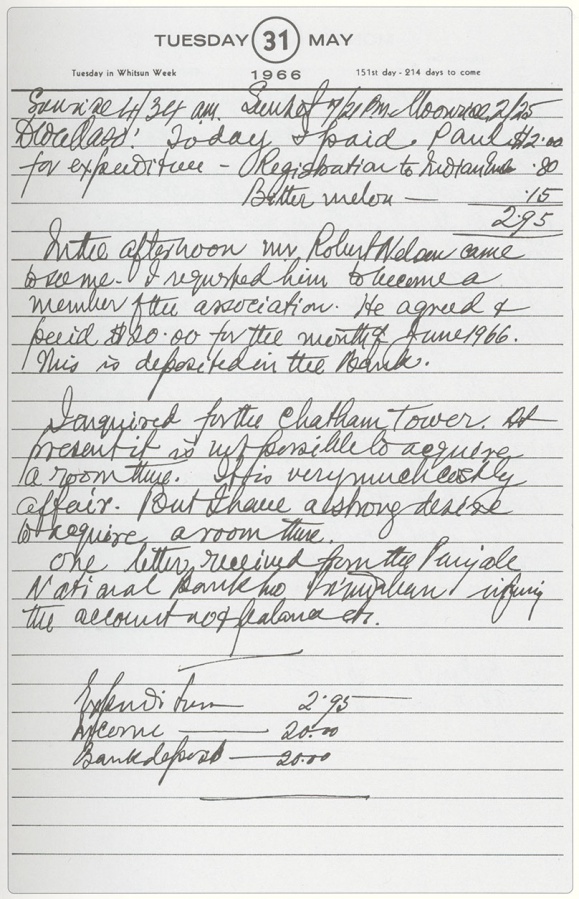 TUESDAY 31 MAY
Tuesday in Whitsun Week 1966 151st day - 214 days to come
Sunrise 4/34 am. Sunset 7/21 Pm. Moonrise 2/25
Today I paid Paul $2.00
for expenditure – Registration to Indian .80
Bitter melon — .15
2.95
In the afternoon mr. Robert Nelson came
to see me. I requested him to become a
member of the association. He agreed &
paid $20.00 for the month of June 1966.
This is deposited in the Bank.
I enquired for the Chatham Tower. At
present it is not possible to acquire
a room there. It is very much costly
affair. But I have a strong desire
to acquire a room there.
One letter received from the Punjab
National Bank Vrindaban informing
the account no & balance etc.
Expenditure 2.95
Income — 20.00
Bank deposit — 20.00